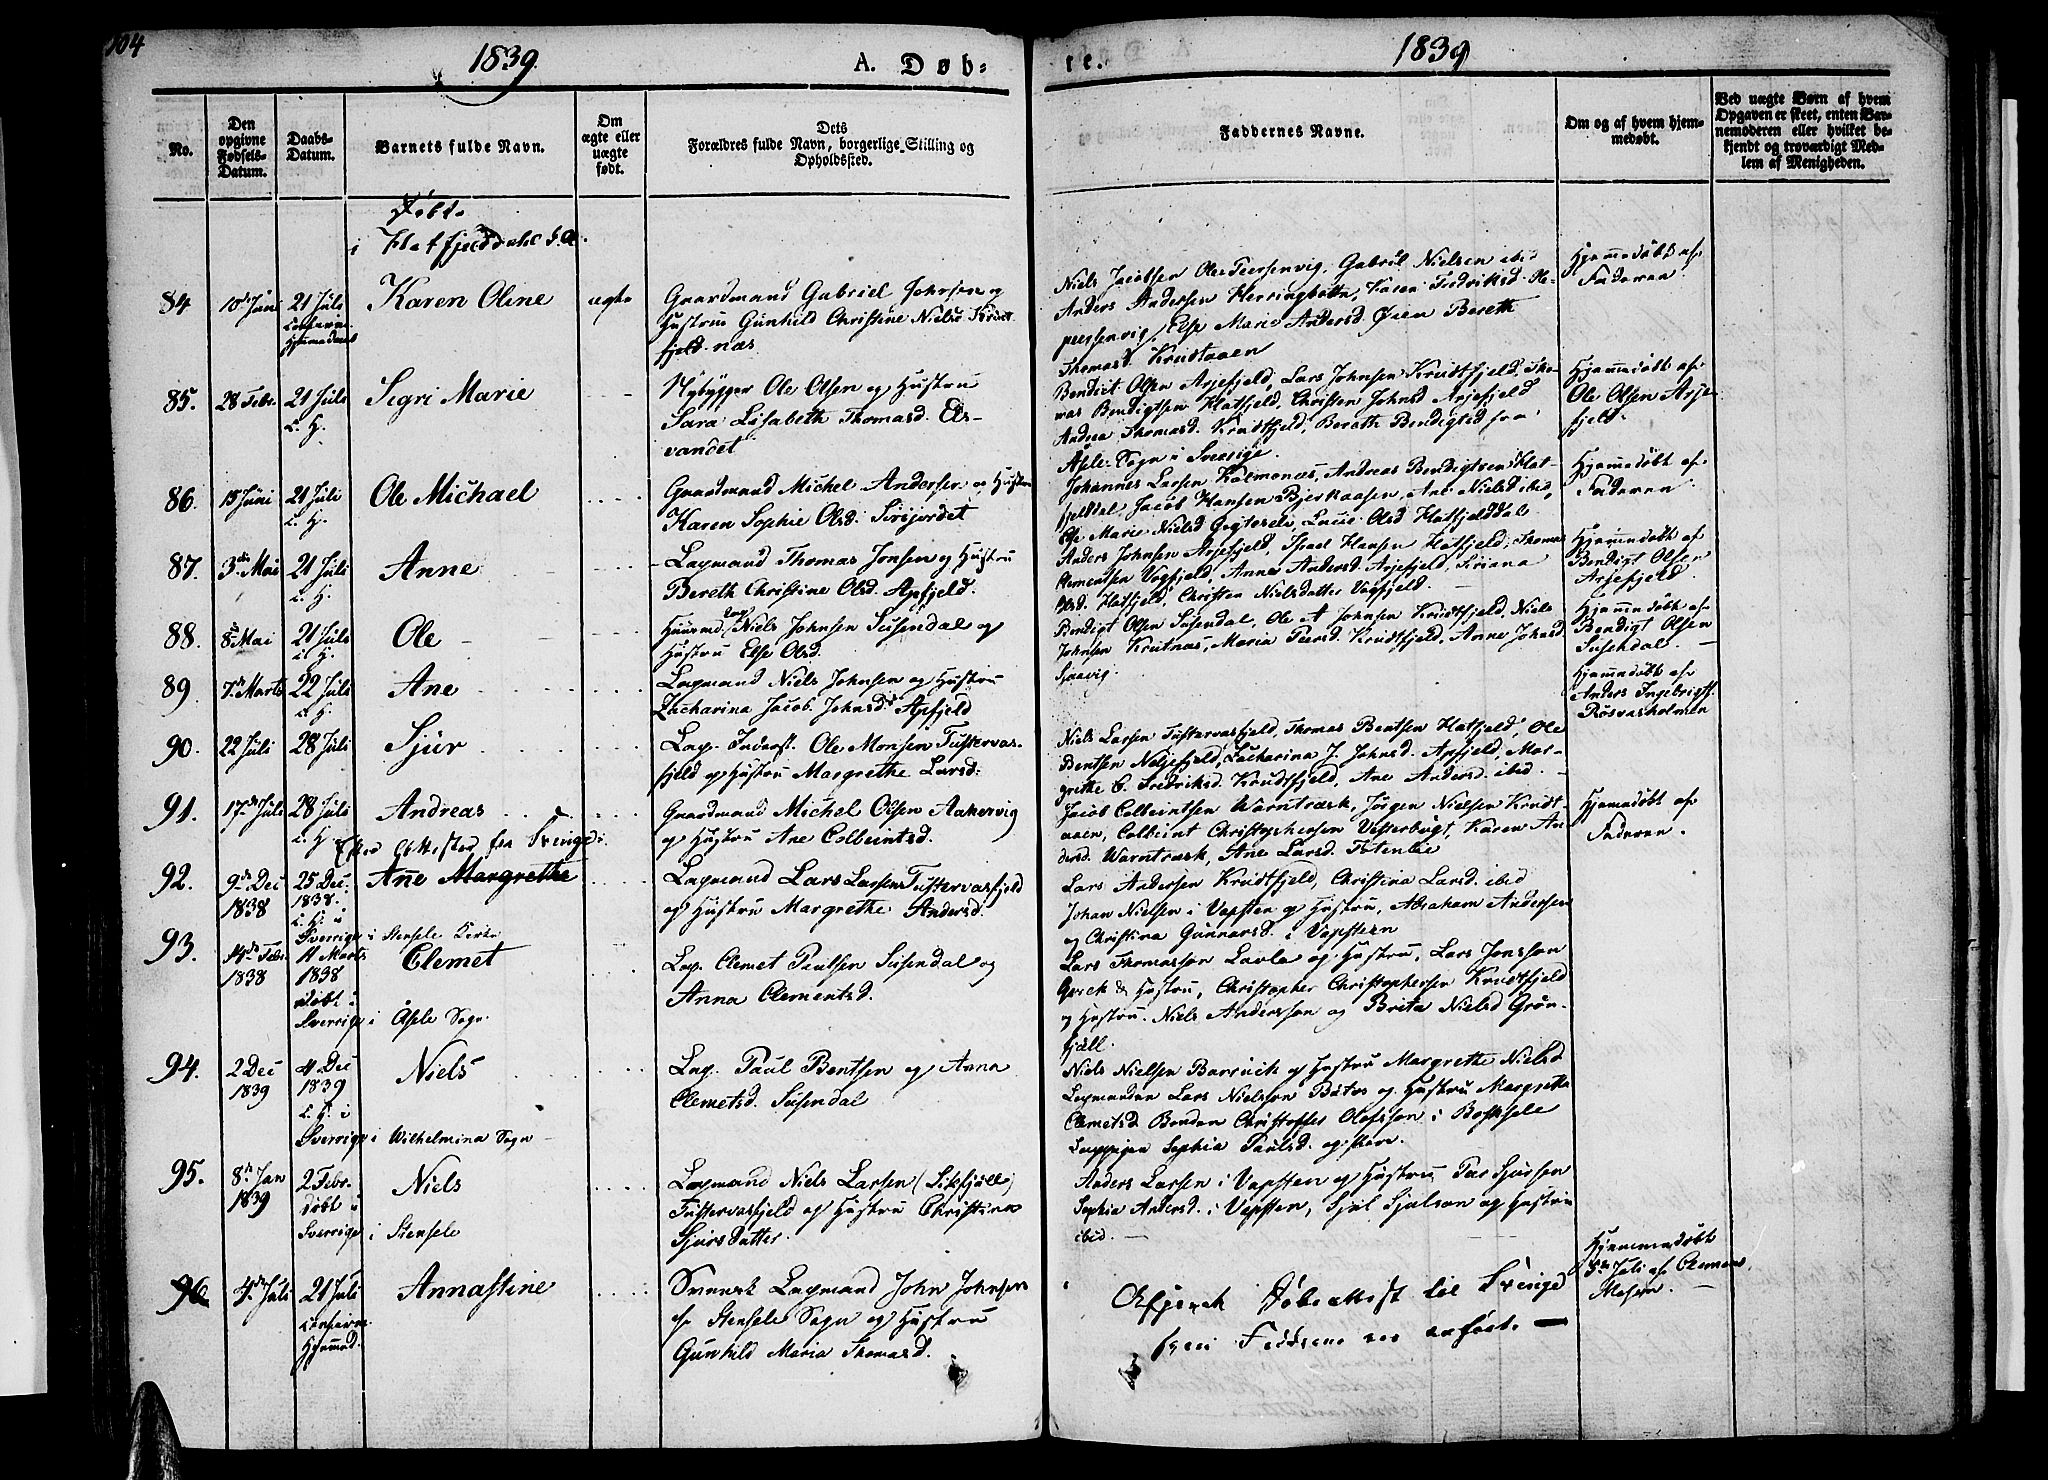 104
1839
A. Døb-
te.
1839
No.
Den opgivne Fødsels-Datum.
Daabs-Datum.
Barnets fulde Navn.
Om ægte eller uægte født.
Dets Forældres fulde Navn, borgerlige Stilling og Opholdssted.
Faddernes Navne.
Om og af hvem hjemmedøbt.
Ved uægte Børn af hvem Opgaven er skeet, enten Barnemoderen eller hvilket bekjendt og troværdigt Medlem af Menigheden.
Døbte
i Hatfjelddalen
84
21 Juli
Karen Oline
ægte
Gaardmand Gabriel Johnsen og
Hustru Gunhild Christine Nielsd
fjeld næs
Niels Jacobsen Gabriel Nielsen ibid
Anders Andersen Herringbotn, Karen Fredriksd.
Else Marie Andersd. Øien Bereth
Thomasd. Krudtaaen
Hjemmedøbt af
Faderen
85.
28 Febr.
21 Juli
c. H.
Segri Marie
Nybygger Ole Olsen og Hustru
Sara Lisabeth Thomasd. Els-
vandet
Bendict Olsen Arjefjeld, Lars Johnsen Krudtfjeld, Tho-
mas Bendigtsen Hatfjeld, Christen Johnsd Arjefjeld
Andrea Thomasd. Krudtfjeld, Bereth Bendigtsd fra
Åsele Sogn i Sverige.
Hjemmedøbt af
Ole Olsen Arje-
fjeld
86.
15 Juni
21 Juli
c. H.
Ole Michael
Gaardmand Michel Andersen og Hustru
Karen Sophie Olsd. Sirijordet
Johannes Larsen Kalmonæs, Andreas Bendigtsen Hat-
fjelddal Jacob Hansen Bjerkaasen, Ane Nielsd ibid,
Else Marie Nielsd Olsd Hatfjelddal
Hjemmedøbt af
Faderen
87.
3die Mai
21 Juli
c. H.
Anne
Lapmand Thomas Jonsen og Hustru
Bereth Christine Olsd. Apfjeld.
Anders Johnsen Arjefjeld, Israel Hansen Hatfjeld, Thomas
Clemensen Vegfjeld, Anne Andersd. Arjefjeld, Siriana
Olsd. Hatfjeld, Christen Nielsdatter Vegfjeld
Hjemmedøbt af
Bendigt Olsen
Arjefjeld.
88.
8de Mai
21 Juli
c. H.
Ole
Niels Johnsen Susendal og
Hustru Else Olsd.
Bendigt Olsen Susendal, Ole Johnsen Krudtfjeld, Niels
Johnsen Krutnæs, Maria Peersd. Krudtfjeld, Anne Johnsd
Sjaavig.
Hjemmedøbt af
Bendigt Olsen
Susendal.
89.
7de Marts
22 Juli
c. H.
Ane
Lapmand Niels Johnsen og Hustru
Zacharina Jacob. Johnsd Apfjeld
Hjemmedøbt af
Anders Ingebrigts.
Røsvasholmen
90.
22 Juli
28 Juli
Sjur
Lap. Inderst. Ole Monsen Tustervas-
fjeld og Hustru Margrethe Larsd:
Niels Larsen Tustervasfjeld, Thomas Bentsen Hatfjeld, Ole
Bentsen Zacharina J. Johnsd. Apfjeld, Mar-
grethe C. Fredriksd. Krudtfjeld, Ane Andersd. ibid.
91.
17de Juli
28 Juli
c. H.
Andreas
Gaardmand Michel Olsen Aakervig
og Hustru Ane Colbeintsd.
Jacob Colbeintsen Warntræsk, Jørgen Nielsen Krudt-
aaen, Colbeint Christophersen Vesterbugt, Karen An-
dersd. Warntræsk, Ane Larsd. Totenlie
Hjemmedøbt af
Faderen.
Efter Attester fra Sverige:
92.
9de Dec
1838
25 Dec.
1838.
c. H. i
Sverrige i Stensele Kirke
Ane Margrethe
Lapmand Lars Larsen Tustervasfjeld
og Hustru Margrethe Andersd.
Lars Andersen Krudtfjeld, Christina Larsd. ibid
Johan Nielsen i Vapsten og Hustru, Abraham Andersen
og Christina Gunnarsd. i Vapstern
93.
14de Febr.
1838
11 Marts
1838
døbt i
Sverrige i Åsele Sogn.
Clemet
Lap. Clemet Paulsen Susendal og
Anna Clementsd.
Lars Thomasson Lavla og Hustru, Lars Jonsson
Hustru, Christopher Christophersen Krudtfjeld
og Hustru. Niels Andersson og Brita Nielsd Grøn-
fjäll.
94.
2 Dec
1839
4 Dec
1839
c. H. i
Sverrige i Wilhelmina Sogn
Niels
Lap. Paul Bentsen og Anna
Clemetsd. Susendal
Niels Nielsen Barsvik og Hustru Margrethe Nielsd
Lapmanden Lars Nielsson Båtas og Hustru Margreta
Clemetsd Bonden Christoffer Olofsson i Bosksele
Lappigen Sophia Paulsd. og flere.
95.
8de Jan
1839
2 Febr.
døbt i
Sverrige i Stensele
Niels
Lapmand Niels Larsen (Sikfjäll)
Tustervasfjeld og Hustru Christina
Sjurs Datter.
Anders Larsen i Vapsten og Hustru Per Sjursen
Sophia Andersd. i Vapsten, Sjul Sjulson og Hustru
ibid.
96.
4de Juli
21 Juli
Hjemmed.
Annastine
Svensk Lapmand John Johnsen
af Stensele Sogn og Hustru
Gunhild Maria Thomasd.
Afgivet Døbeattest til Sverige
hvori Faddrene ere anførte.
Hjemmedøbt
5te Juli af Clemens